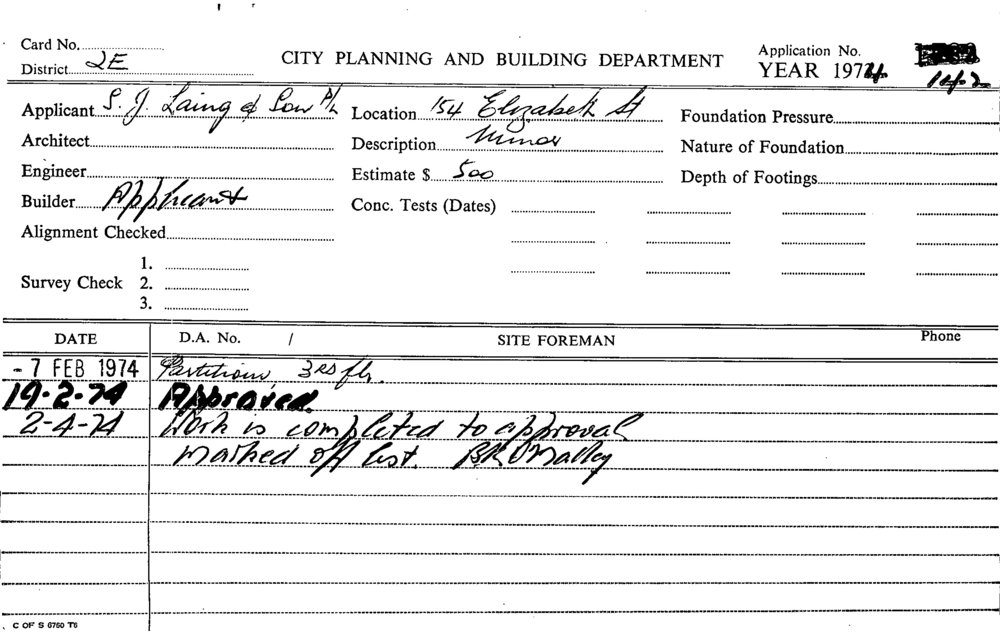 Card No.
District 2E
CITY PLANNING AND BUILDING DEPARTMENT
Application No.
YEAR 1974
142
Applicant S. J. Laing & Son P/L
Location 154 Elizabeth St
Foundation Pressure
Architect
Description Minor
Nature of Foundation
Engineer
Estimate $ 500
Depth of Footings
Builder Applicant
Conc. Tests (Dates)
Alignment Checked
Survey Check
1.
2.
3.
DATE
D.A. No. /
SITE FOREMAN
Phone
- 7 FEB 1974 Partitions, 3RD flr.
19-2-74 Approved.
2-4-74 Work is completed to approval
marked off list. BR O'Malley
C OF S 6760 T6